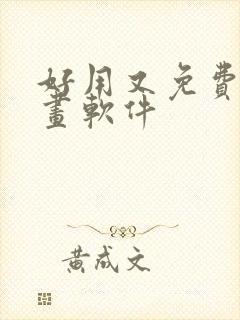 好用又免費
畫軟件
黃成文